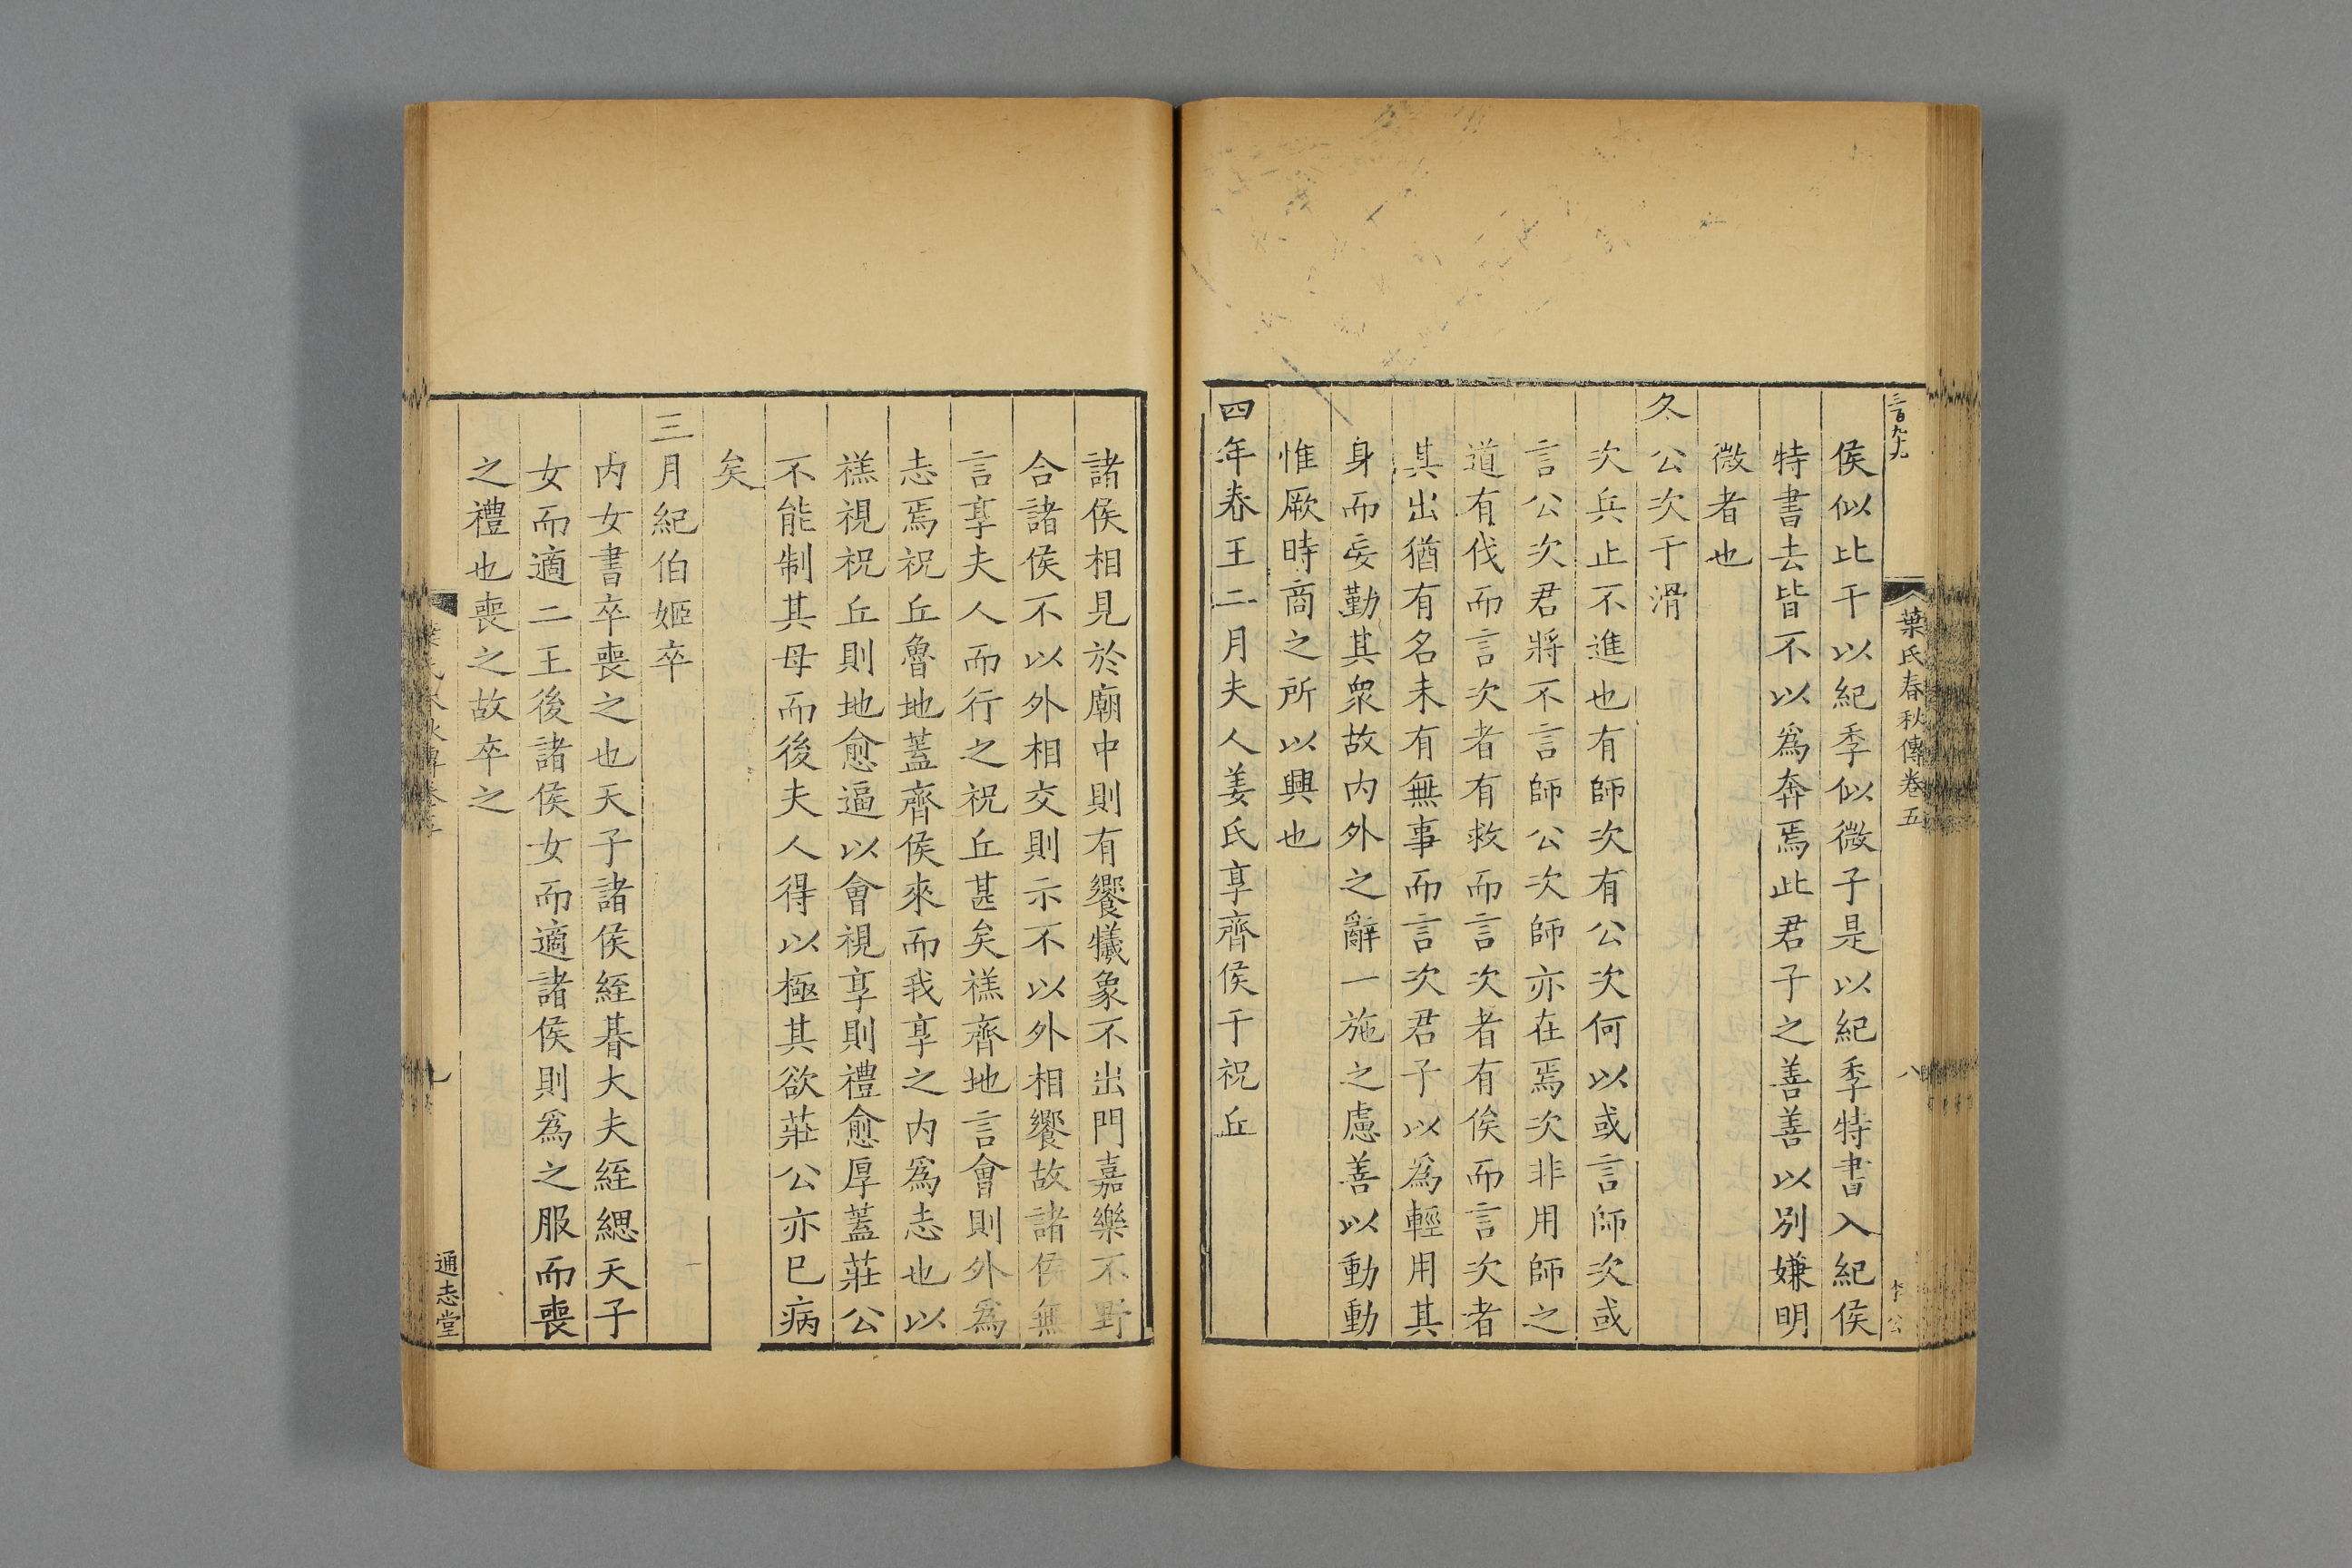 三百九十九
葉氏春秋傳卷五
八
李公
侯似比干以紀季似微子是以紀季特書入紀侯
特書去皆不以爲奔焉此君子之善善以別嫌明
微者也
冬公次于滑
次兵止不進也有師次有公次何以或言師次或
言公次君將不言師公次師亦在焉次非用師之
道有伐而言次者有救而言次者有俟而言次者
其出猶有名未有無事而言次君子以爲輕用其
身而妄勤其衆故内外之辭一施之慮善以動動
惟厥時商之所以興也
四年春王二月夫人姜氏享齊侯于祝丘
諸侯相見於廟中則有饗犧象不出門嘉樂不野
合諸侯不以外相交則示不以外相饗故諸侯無
言享夫人而行之祝丘甚矣禚齊地言會則外爲
志焉祝丘魯地蓋齊侯來而我享之内爲志也以
禚視祝丘則地愈逼以會視享則禮愈厚蓋莊公
不能制其母而後夫人得以極其欲莊公亦已病
矣
三月紀伯姬卒
内女書卒喪之也天子諸侯絰朞大夫絰緦天子
女而適二王後諸侯女而適諸侯則爲之服而喪
之禮也喪之故卒之
通志堂